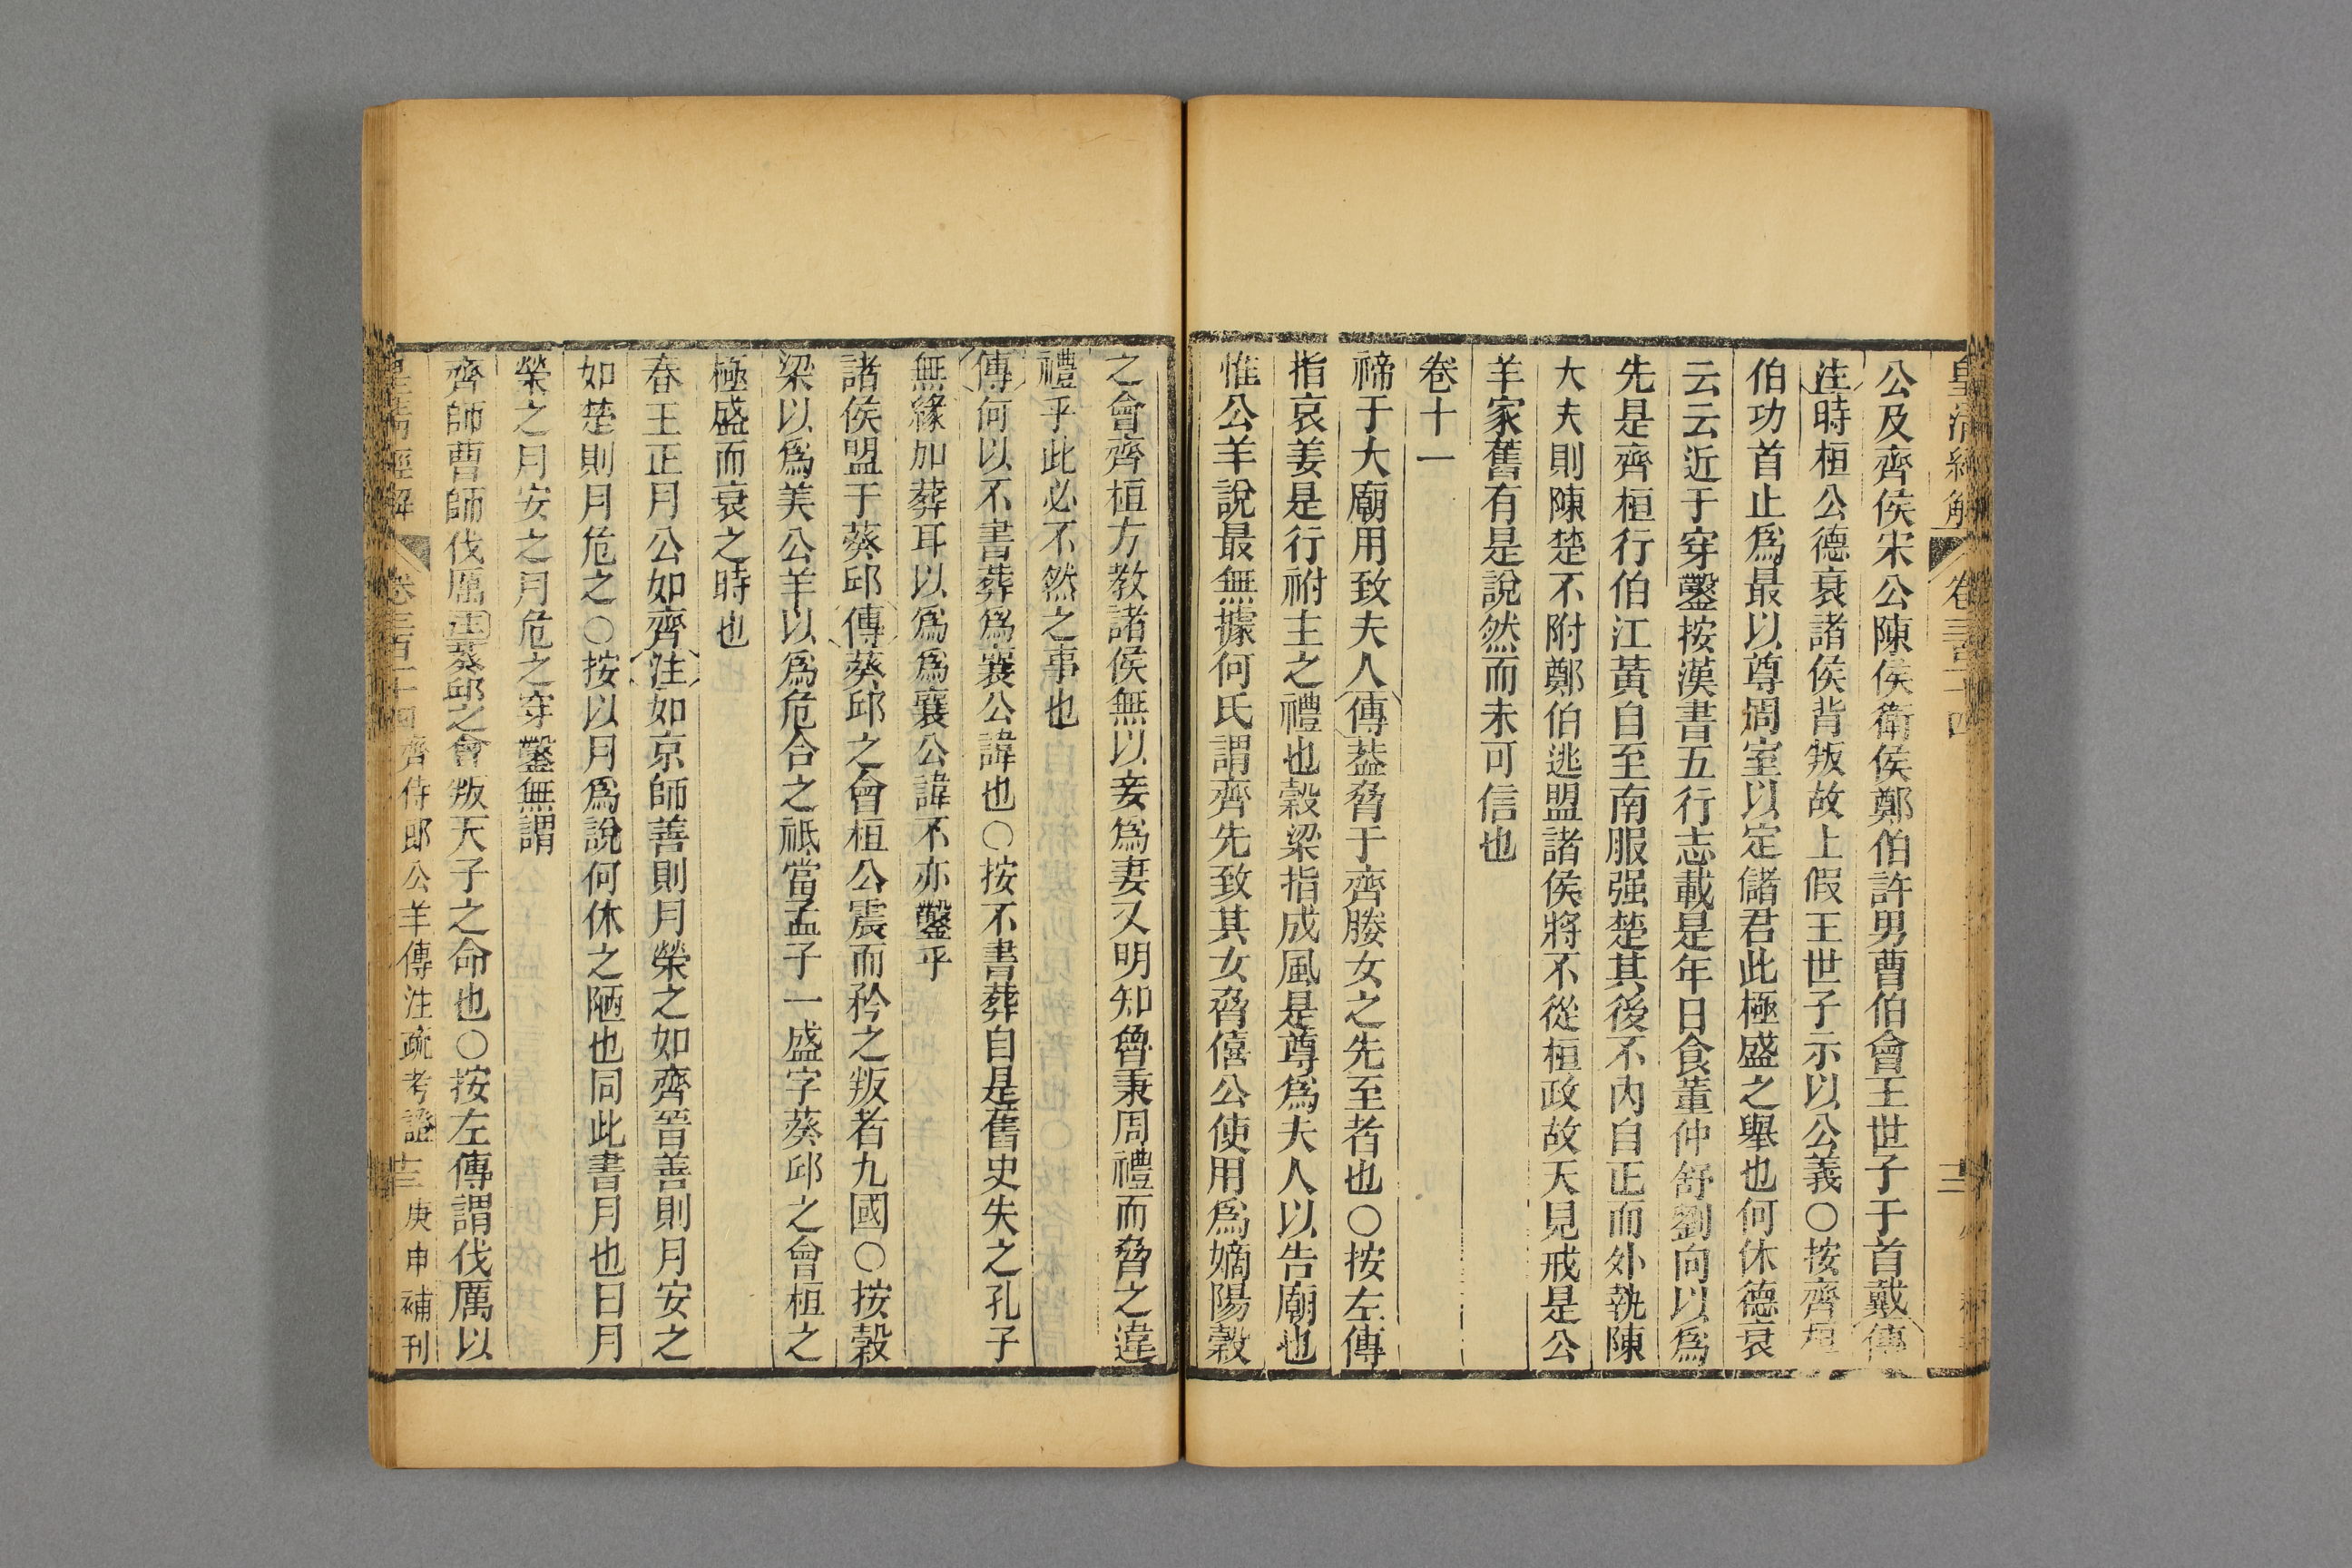 皇清經解 卷三百十四
公及齊侯宋公陳侯衛侯鄭伯許男曹伯會王世子于首戴傳
注時桓公德衰諸侯背叛故上假王世子示以公義○按齊桓
伯功首止爲最以尊周室以定儲君此極盛之舉也何休德衰
云云近于穿鑿按漢書五行志載是年日食董仲舒劉向以爲
先是齊桓行伯江黃自至南服强楚其後不內自正而外執陳
大夫則陳楚不附鄭伯逃盟諸侯將不從桓政故天見戒是公
羊家舊有是說然而未可信也
卷十一
禘于大廟用致夫人傳葢脅于齊媵女之先至者也○按左傳
指哀姜是行祔主之禮也穀梁指成風是尊爲夫人以告廟也
惟公羊說最無據何氏謂齊先致其女脅僖公使用爲嫡陽穀
之會齊桓方敎諸侯無以妾爲妻又明知魯秉周禮而脅之違
禮乎此必不然之事也
傳何以不書葬爲襄公諱也○按不書葬自是舊史失之孔子
無緣加葬耳以爲爲襄公諱不亦鑿乎
諸侯盟于葵邱傳葵邱之會桓公震而矜之叛者九國○按穀
梁以爲美公羊以爲危合之祗當孟子一盛字葵邱之會桓之
極盛而衰之時也
春王正月公如齊注如京師善則月榮之如齊晉善則月安之
如楚則月危之○按以月爲說何休之陋也同此書月也曰月
榮之月安之月危之穿鑿無謂
齊師曹師伐厲注葵邱之會叛天子之命也○按左傳謂伐厲以
皇淸經解 卷三百十四 齊侍郎公羊傳注疏考證 十三 庚申補刊